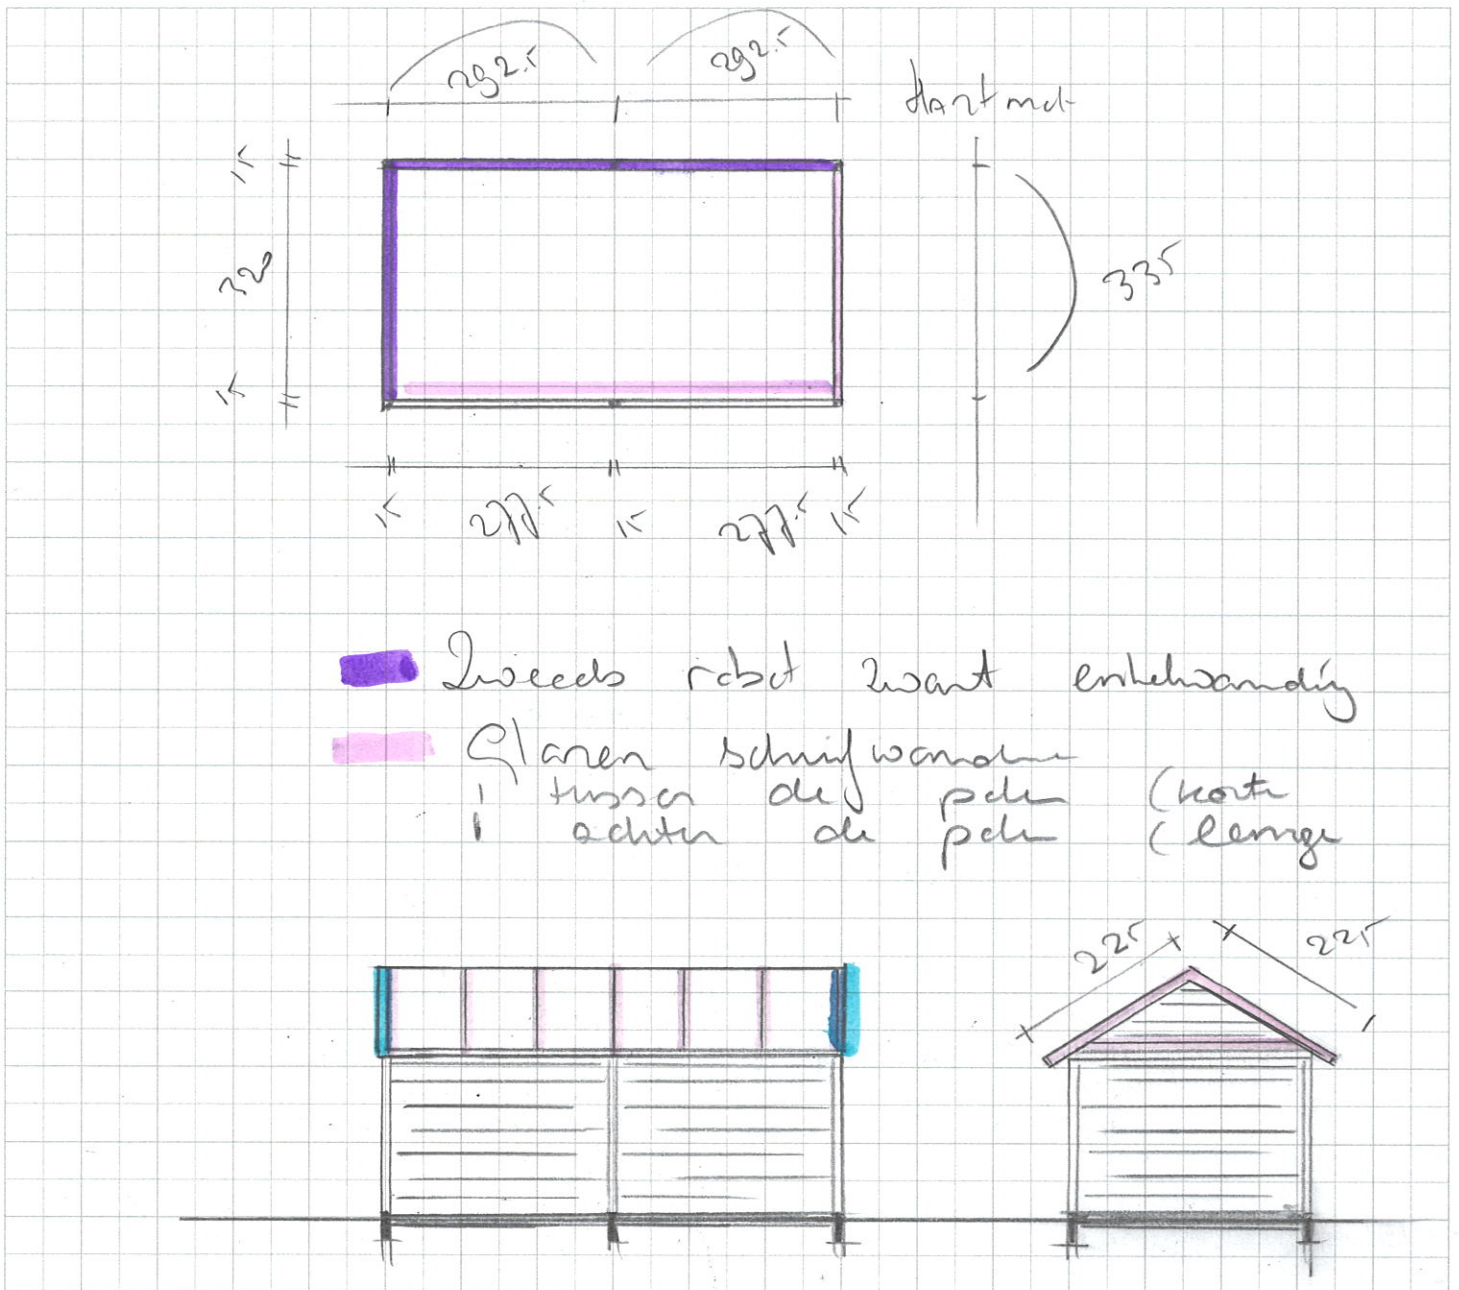 292.5 292.5
Hart mat
15
320
335
15
15 277.5 15 277.5 15
Zweeds rabat want enkelwandig
Glazen schuifwanden
tussen de palen (korte
achter de palen (lange
225 225